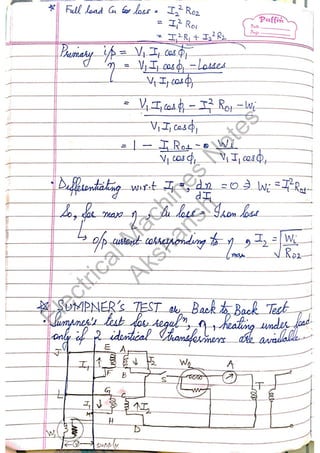 * Full load Cu loss = I₂² R₀₂
= I₁² R₀₁
= I₁² R₁ + I₂² R₂
Puffin
Date
Page
Primary i/p = V₁ I₁ cosϕ₁
η = V₁ I₁ cosϕ₁ - Losses
V₁ I₁ cosϕ₁
= V₁ I₁ cosϕ₁ - I₁² R₀₁ - Wi
V₁ I₁ cosϕ₁
= 1 - I₁ R₀₁ - Wi
V₁ cosϕ₁ V₁ I₁ cosϕ₁
• Differentiating w.r.t I₁ =, dη = 0 ⇒ Wi = I₁² R₀₁
dI₁
So, for max η, Cu loss = Iron loss
↳ o/p current corresponding to η max, I₂ = √Wi
R₀₂
* SUMPNER'S TEST or Back to Back Test
• Sumpner's test for regulⁿ, η, heating under load
only if 2 identical transformers are available
J E A I₂ W₂ A
I₁ F B S T
L G C
I₁ I₂
H D
W₁
Electrical Machines Notes